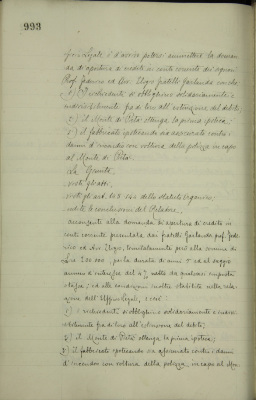 993
fici Legale è d'avviso potersi ammettere la doman
da di apertura di credito in conto corrente dei signori
Prof. Federico ed Avv. Eligio fratelli Garlanda, purchè
1°) I richiedenti si obblighino solidariamente e
indivisibilmente fra di loro all'estinzione del debito;
2°) il Monte di Pietà ottenga la prima ipoteca;
3°) il fabbricato ipotecando sia assicurato contro i
danni d'incendio con voltura della polizza in capo
al Monte di Pietà.
La Giunta,
visti gli atti,
visti gli art. 108 dello Statuto Organico,
udite le conclusioni del Relatore,
accogliente alla domanda di apertura di credito in
conto corrente presentata dai fratelli Garlanda prof. Fede-
rico ed Avv. Eligio, limitatamente però alla somma di
Lire 200.000, per la durata di anni 5 ed al saggio
annuo d'interesse del 4% netto da qualsiasi imposta
e tassa; ed alle condizioni inoltre stabilite nella rela
zione dell'Ufficio Legale, e cioè:
1°) i richiedenti si obblighino solidariamente e indivi-
sibilmente fra di loro all'estinzione del debito;
2°) il Monte di Pietà ottenga la prima ipoteca;
3°) il fabbricato ipotecando sia assicurato contro i danni
d'incendio con voltura della polizza, in capo al Mon-